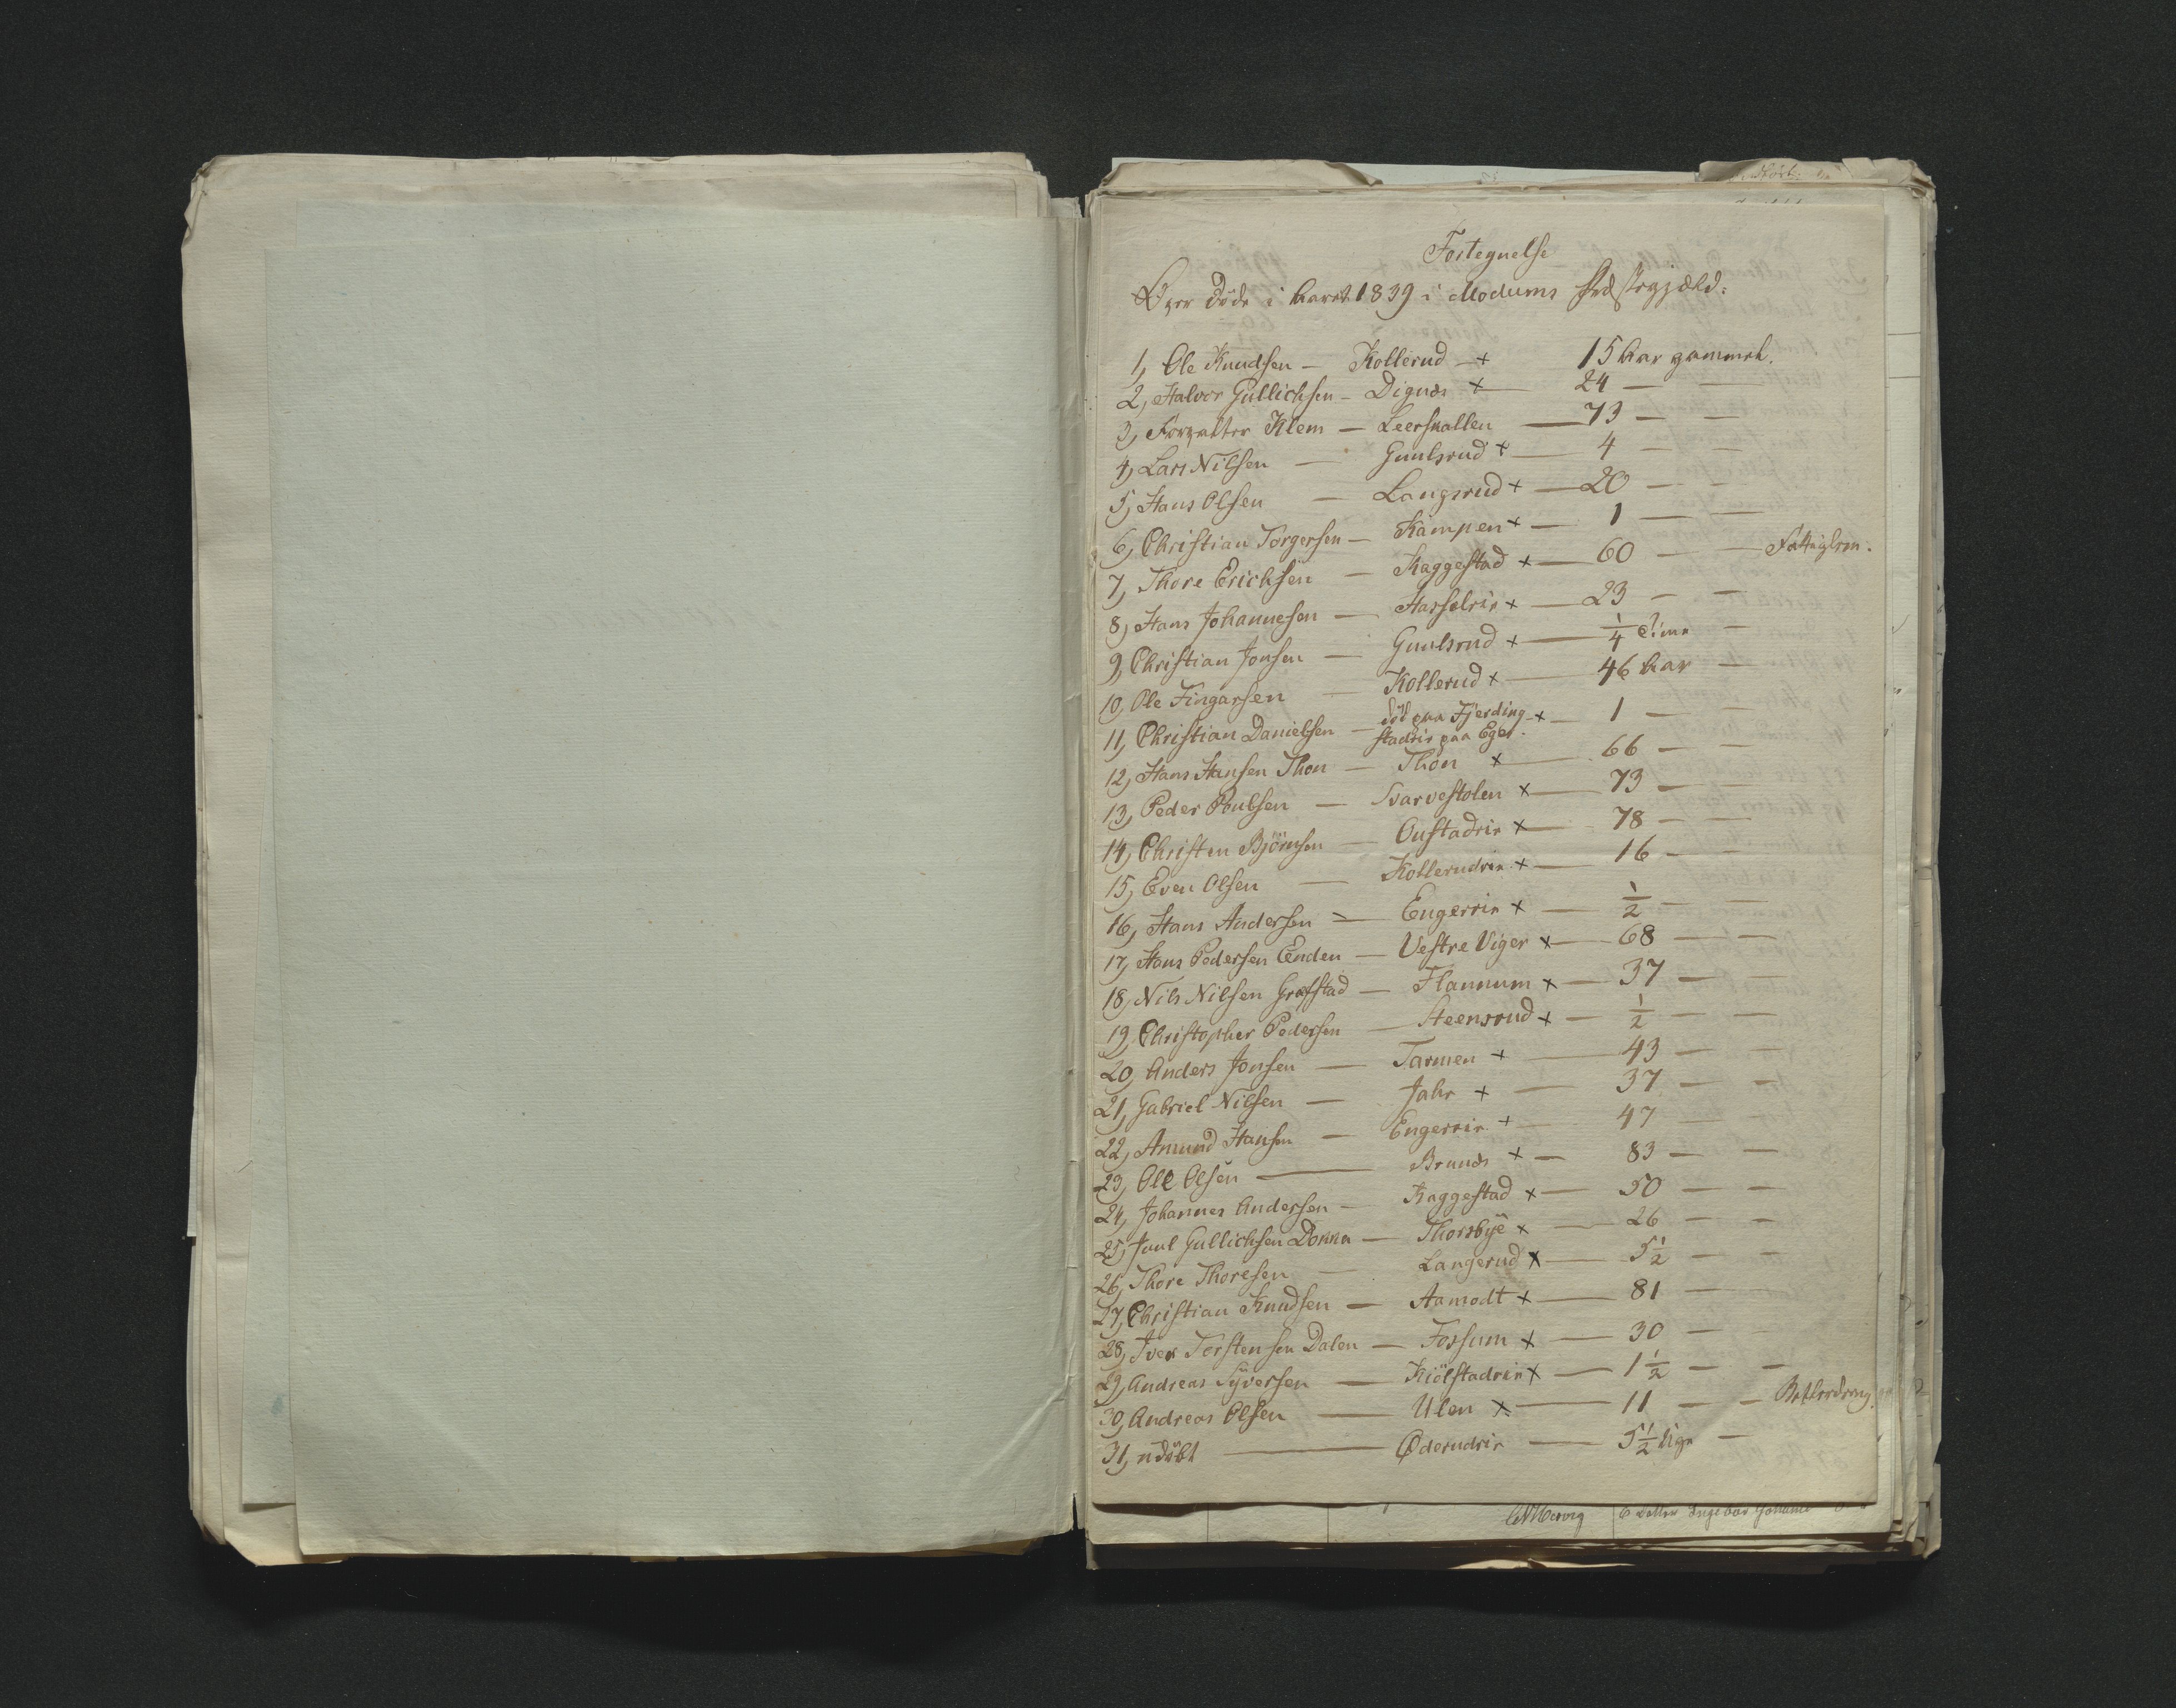 Fortegnelse
Over Døde i Aaret 1839 i Modums Præstegjæld:
1, Ole Knudsen — Kollerud — + 15 Aar gammel.
2, Halvor Gullichsen — Dignæs + — 24 — —
3, Forvalter Klem — Leerskallen — 73 — —
4, Lars Nilsen — Guulsrud + — 4 — —
5, Hans Olsen — Langsrud + — 20 — —
6, Christian Torgersen — Kampen + — 1 — —
7, Thore Erichsen — Kaggestad + — 60 — — Fattiglem.
8, Hans Johannesen — Hasseleie + — 23 — —
9, Christian Jonsen — Guulsrud + — 1/4 Time —
10, Ole Fingarsen — Kollerud + — 46 Aar —
11, Christian Danielsen — død paa Fjerding- + — 1 — —
stadeie paa Eger.
12, Hans Hansen Thon — Thon + — 66 — —
13, Peder Poulsen — Svarvestolen + — 73 — —
14, Christen Björnsen — Oustadeie + — 78 — —
15, Even Olsen — Kollerudeie + — 16 — —
16, Hans Andersen — Engereie + — 1/2 — —
17, Hans Pedersen Enden — Vestre Viger + — 68 — —
18, Nils Nilsen Græfstad — Flannum + — 37 — —
19, Christopher Pedersen — Steensrud + — 1/2 — —
20, Anders Jonsen — Tarmen + — 43 — —
21, Gabriel Nilsen — Jahr + — 37 — —
22, Amund Hansen — Engereie + — 47 — —
23, Ole Olsen — Brunæs + — 83 — —
24, Johannes Andersen — Kaggestad + — 50 — —
25, Juul Gullichsen Donna — Thorsbye + — 26 — —
26, Thore Thoresen — Langerud + — 5 1/2 — —
27, Christian Knudsen — Aamodt + — 81 — —
28, Iver Torstensen Dalen — Fossum + — 30 —
29, Andreas Syversen — Kiölstadeie + — 1 1/2 — —
30, Andreas Olsen — Ulen + — 11 — — Betlerdreng.
31, udøbt — Øderudeie — 5 1/2 Uge —